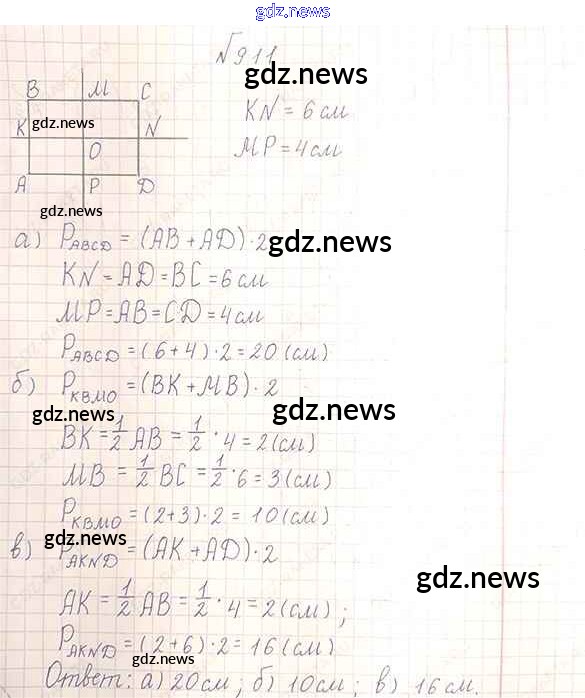 gdz.news
№911
gdz.news
B M C
KN = 6 см
K gdz.news N
MP = 4 см
O
A P D
gdz.news
а) P_ABCD = (AB + AD) · 2
gdz.news
KN = AD = BC = 6 см
MP = AB = CD = 4 см
P_ABCD = (6 + 4) · 2 = 20 (см)
б) P_KBMO = (BK + MB) · 2
gdz.news gdz.news
BK = 1/2 AB = 1/2 · 4 = 2 (см)
MB = 1/2 BC = 1/2 · 6 = 3 (см)
P_KBMO = (2 + 3) · 2 = 10 (см)
в) P_AKND = (AK + AD) · 2
gdz.news
AK = 1/2 AB = 1/2 · 4 = 2 (см);
P_AKND = (2 + 6) · 2 = 16 (см)
gdz.news
Ответ: а) 20 см; б) 10 см; в) 16 см.